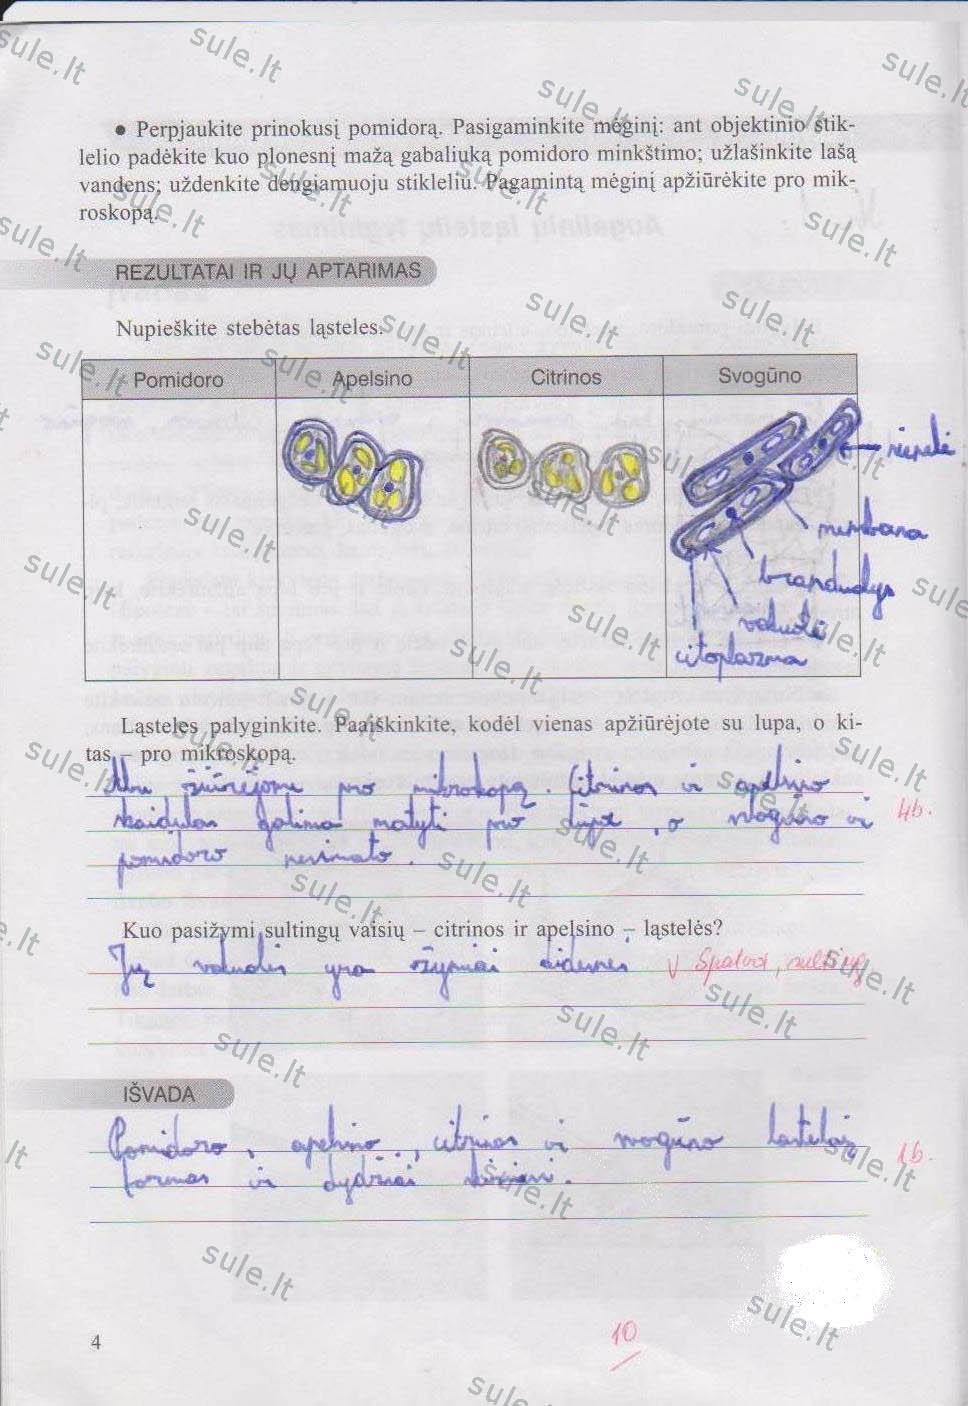 • Perpjaukite prinokusį pomidorą. Pasigaminkite mėginį: ant objektinio stik-
lelio padėkite kuo plonesnį mažą gabaliuką pomidoro minkštimo; užlašinkite lašą
vandens; uždenkite dengiamuoju stikleliu. Pagamintą mėginį apžiūrėkite pro mik-
roskopą.
REZULTATAI IR JŲ APTARIMAS
Nupieškite stebėtas ląsteles.
Pomidoro Apelsino Citrinos Svogūno
sienelė
membrana
branduolys
vakuolė
citoplazma
Ląsteles palyginkite. Paaiškinkite, kodėl vienas apžiūrėjote su lupa, o ki-
tas – pro mikroskopą.
Mes žiūrėjome pro mikroskopą. Citrinos ir apelsino
skaidulas galima matyti pro lūpą, o svogūno ir
pomidoro nesimato.
4b.
Kuo pasižymi sultingų vaisių – citrinos ir apelsino – ląstelės?
Jų vakuolės yra žymiai didesnės V Spalva,
IŠVADA
Pomidoro, apelsino, citrinos ir svogūno lastelių
formos ir dydžiai skiriasi.
1b.
4
10
sule.lt